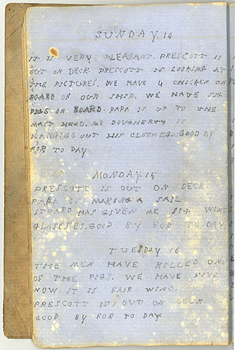 SUNDAY 14
IT IS VERY PLEASANT. PRESCOTT IS
OUT ON DECK PRESCOTT IS LOOKING AT
THE PICTURES. WE HAVE 4 CHICKEN ON
BOARD OF OUR SHIP. WE HAVE SIX
PIGS ON BOARD. PAPA IS UP TO THE
MAST HEAD. MR DOUGHERTY IS
HANGING OUT HIS CLOTHES. GOOD BY
FOR TO DAY
MONDAY 15
PRESCOTT IS OUT ON DECK.
PAPA IS MAKING A SAIL
STUARD HAS GIVEN ME SIX WINE
GLASSES. GOOD BY FOR TO DAY
TUESDAY 16.
THE MEN HAVE KILLED ONE
OF THE PIGS. WE HAVE FIVE
NOW IT IS FAIR WIND.
PRESCOTT IS OUT ON DECK
GOOD BY FOR TO DAY